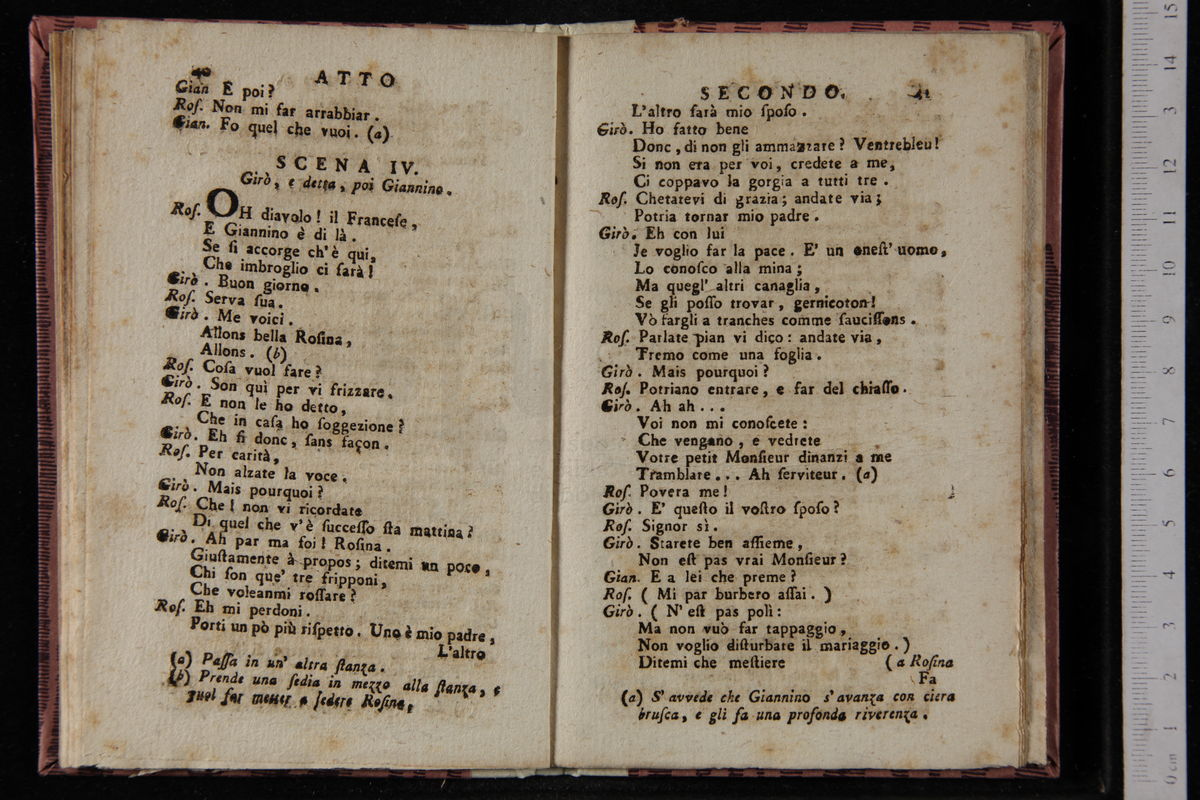 40 ATTO
Gian E poi?
Roſ. Non mi far arrabbiar.
Gian. Fo quel che vuoi. (a)
SCENA IV.
Girò, e detta, poi Giannino.
Roſ. OH diavolo! il Franceſe,
E Giannino è di là.
Se ſi accorge ch'è qui,
Che imbroglio ci ſarà!
Girò. Buon giorno.
Roſ. Serva ſua.
Girò. Me voici.
Allons bella Roſina,
Allons. (b)
Roſ. Coſa vuol fare?
Girò. Son quì per vi frizzare.
Roſ. E non le ho detto,
Che in caſa ho ſoggezione?
Girò. Eh fi donc, ſans façon.
Roſ. Per carità,
Non alzate la voce.
Girò. Mais pourquoi?
Roſ. Che! non vi ricordate
Di quel che v'è ſucceſſo ſta mattina?
Girò. Ah par ma foi! Roſina.
Giuſtamente à propos; ditemi un poco,
Chi ſon que' tre fripponi,
Che voleanmi roſſare?
Roſ. Eh mi perdoni.
Porti un pò più riſpetto. Uno è mio padre,
L'altro
(a) Paſſa in un' altra ſtanza.
(b) Prende una ſedia in mezzo alla ſtanza, e
vuol far metter a ſedere Roſina.
SECONDO. 41
L'altro farà mio ſpoſo.
Girò. Ho fatto bene
Donc, di non gli ammazzare? Ventrebleu!
Si non era per voi, credete a me,
Ci coppavo la gorgia a tutti tre.
Roſ. Chetatevi di grazia; andate via;
Potria tornar mio padre.
Girò. Eh con lui
Je voglio far la pace. E' un oneſt' uomo,
Lo conoſco alla mina;
Ma quegl' altri canaglia,
Se gli poſſo trovar, gernicoton!
Vò fargli a tranches comme ſauciſſons.
Roſ. Parlate pian vi dico: andate via,
Tremo come una foglia.
Girò. Mais pourquoi?
Roſ. Potriano entrare, e far del chiaſſo.
Girò. Ah ah...
Voi non mi conoſcete:
Che vengano, e vedrete
Votre petit Monſieur dinanzi a me
Tramblare... Ah ſerviteur. (a)
Roſ. Povera me!
Girò. E' queſto il voſtro ſpoſo?
Roſ. Signor sì.
Girò. Starete ben aſſieme,
Non eſt pas vrai Monſieur?
Gian. E a lei che preme?
Roſ. ( Mi par burbero aſſai. )
Girò. ( N' eſt pas polì:
Ma non vuò far tappaggio,
Non voglio diſturbate il mariaggio.)
Ditemi che meſtiere (a Roſina
Fa
(a) S' avvede che Giannino s' avanza con ciera
bruſca, e gli fa una profonda riverenza.
0 cm 1 2 3 4 5 6 7 8 9 10 11 12 13 14 15